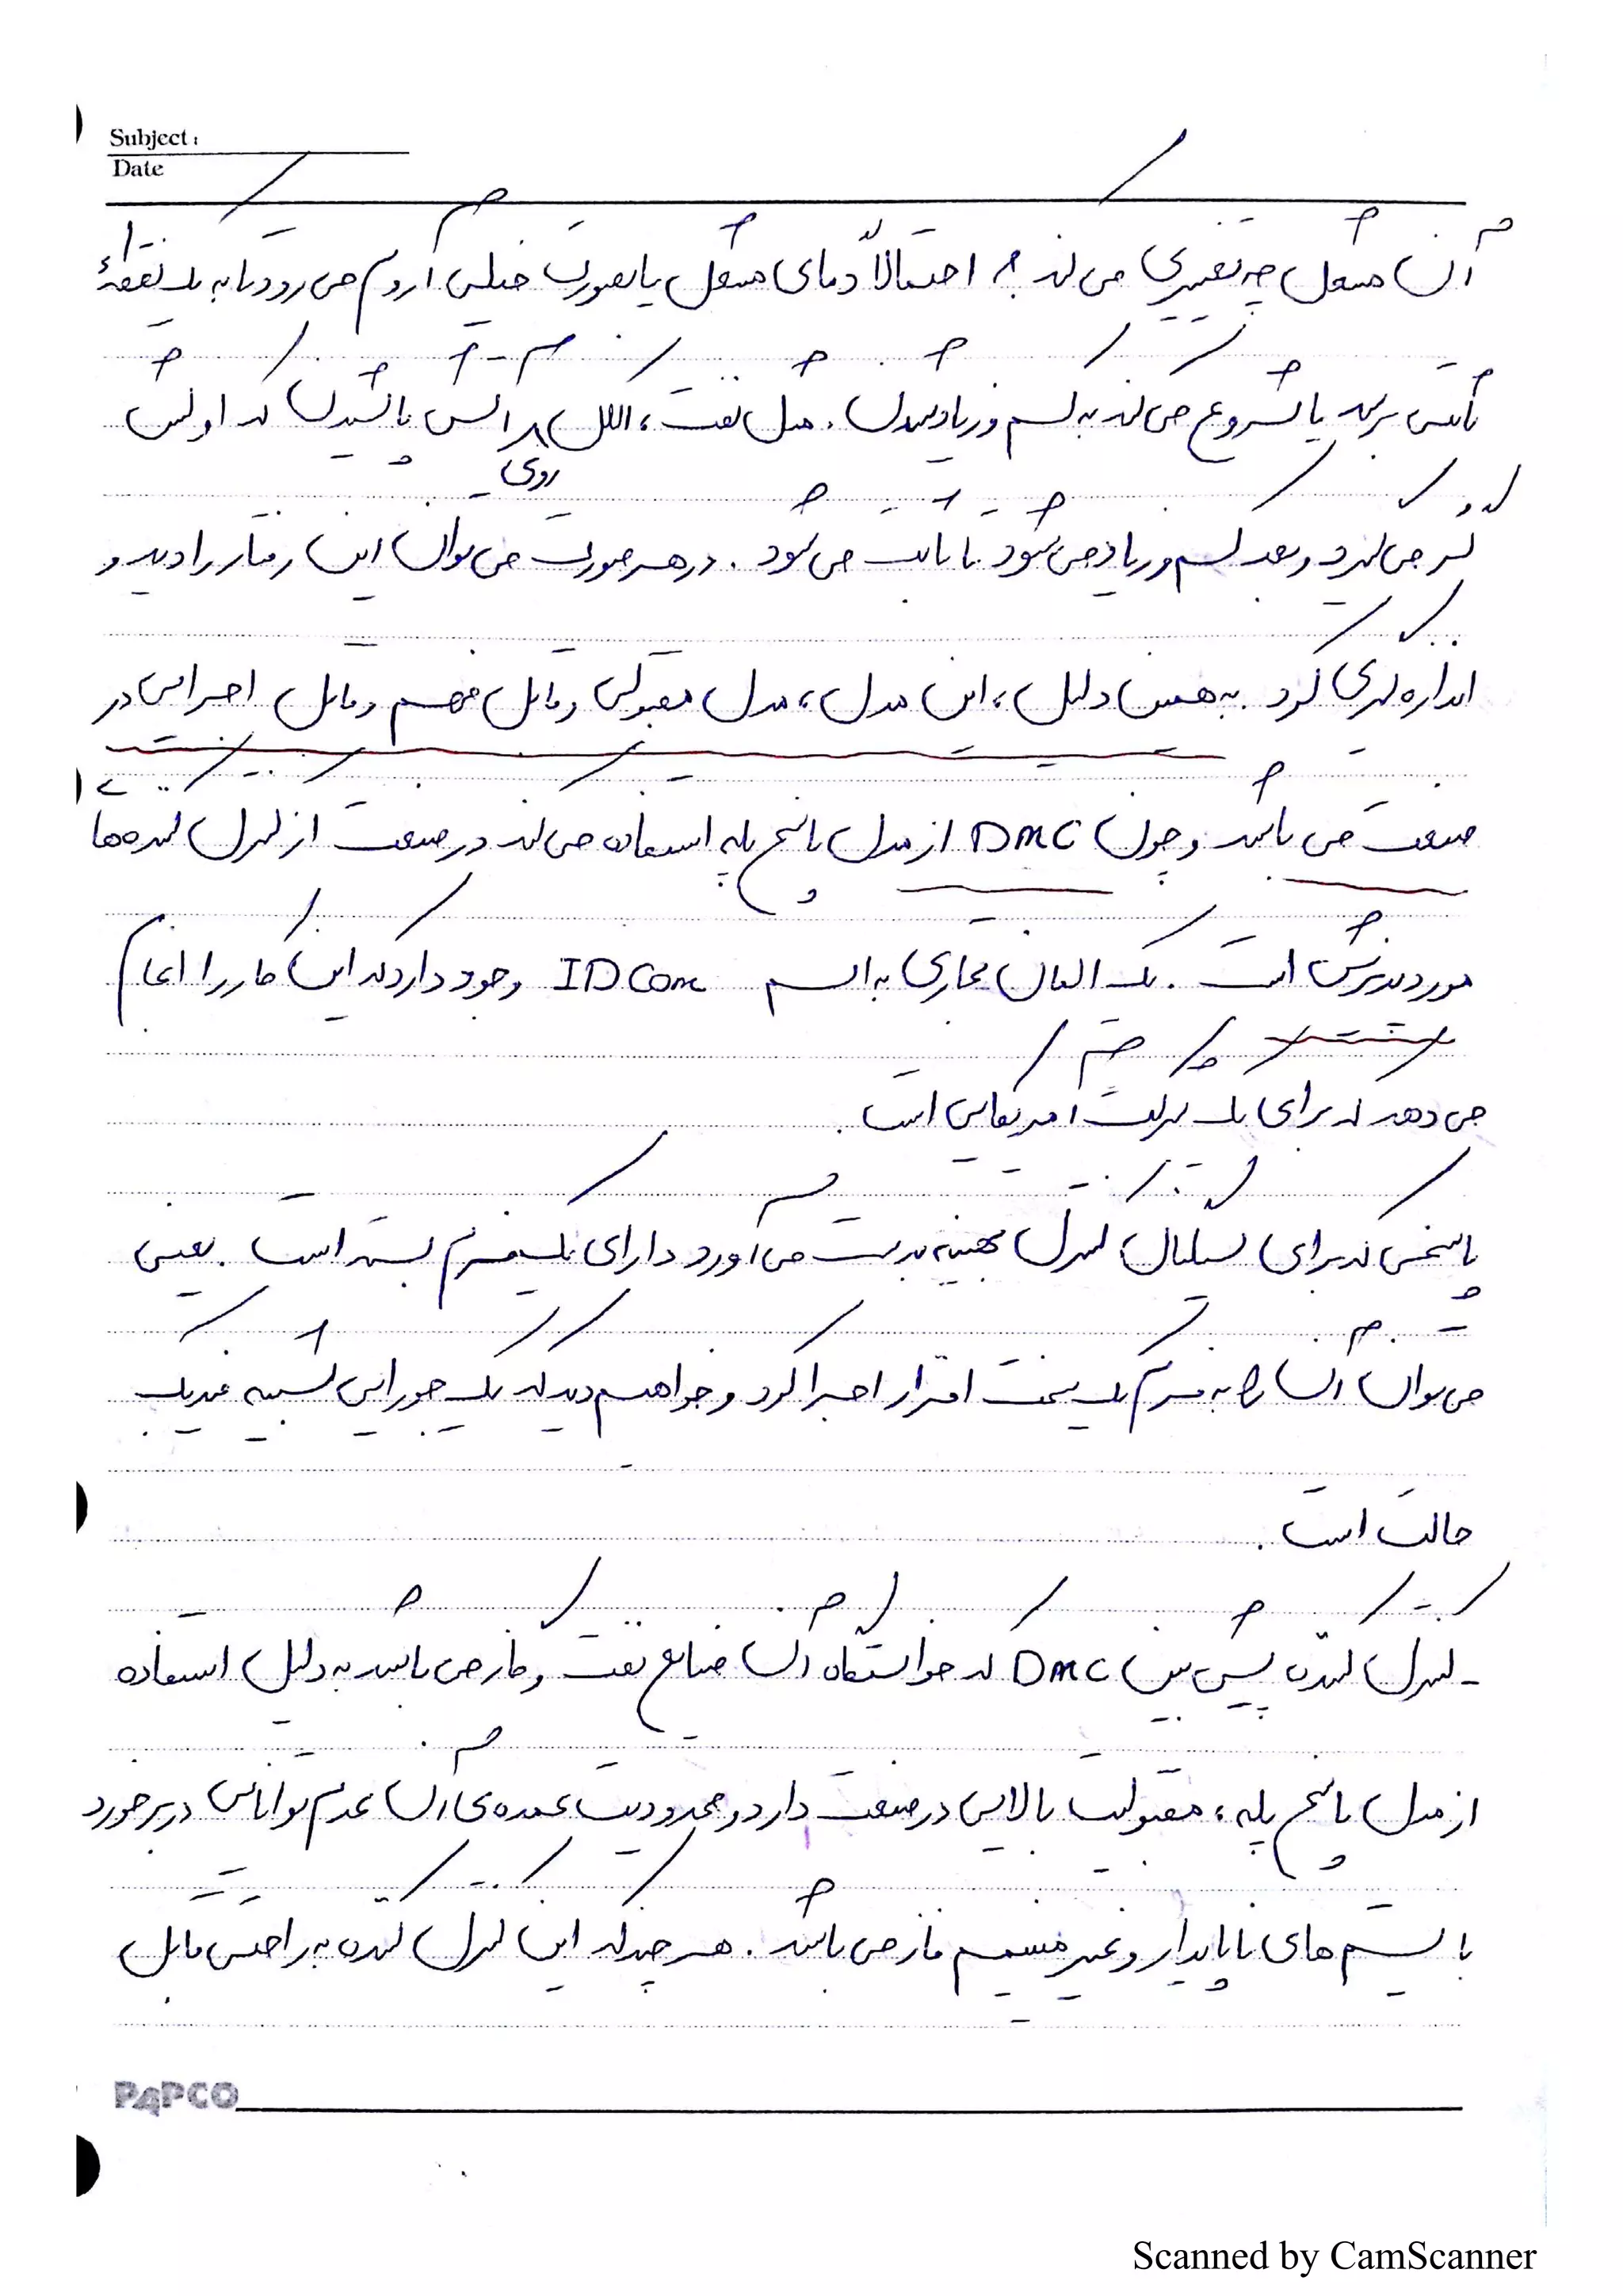 Subject:
Date
آن مشعل چه تغییری می‌کند؟ احتمالاً دمای مشعل یا بصورت خیلی آروم می‌رود تا به یک نقطهٔ
ثابتی برسد یا شروع می‌کند به کم و زیاد شدن. مثل نفت، الکل روی آتش پاشیدن که اولش
گر می‌گیرد و بعد کم و زیاد می‌شود تا ثابت می‌شود. در هر صورت می‌توان این رفتار را دید و
اندازه‌گیری کرد. به همین دلیل، این مدل، مدل مقبولی و قابل فهم و قابل اجرایی در
صنعت می‌باشد و چون DMC از مدل پاسخ پله استفاده می‌کند در صنعت از کنترل کننده‌ها
مورد پذیرش است. یک المان تجاری به اسم IDCom وجود دارد که این کار را انجام
می‌دهد که برای یک شرکت آمریکایی است.
پاسخی که برای سیگنال کنترل بهینه بدست می‌آورد دارای یک فرم بسته است. یعنی
می‌توان آن را به فرم یک سخت افزار اجرا کرد و خواهیم دید که یک جورایی شبیه فیدبک
حالت است.
- کنترل کننده پیش بین DMC که خواستگاه آن صنایع نفت و گاز می‌باشد به دلیل استفاده
از مدل پاسخ پله، مقبولیت بالایی در صنعت دارد و محدودیت عمده‌ی آن عدم توانایی در برخورد
با سیستم‌های ناپایدار و غیر مینیمم فاز می‌باشد. هر چند که این کنترل کننده به راحتی قابل
PAPCO
Scanned by CamScanner